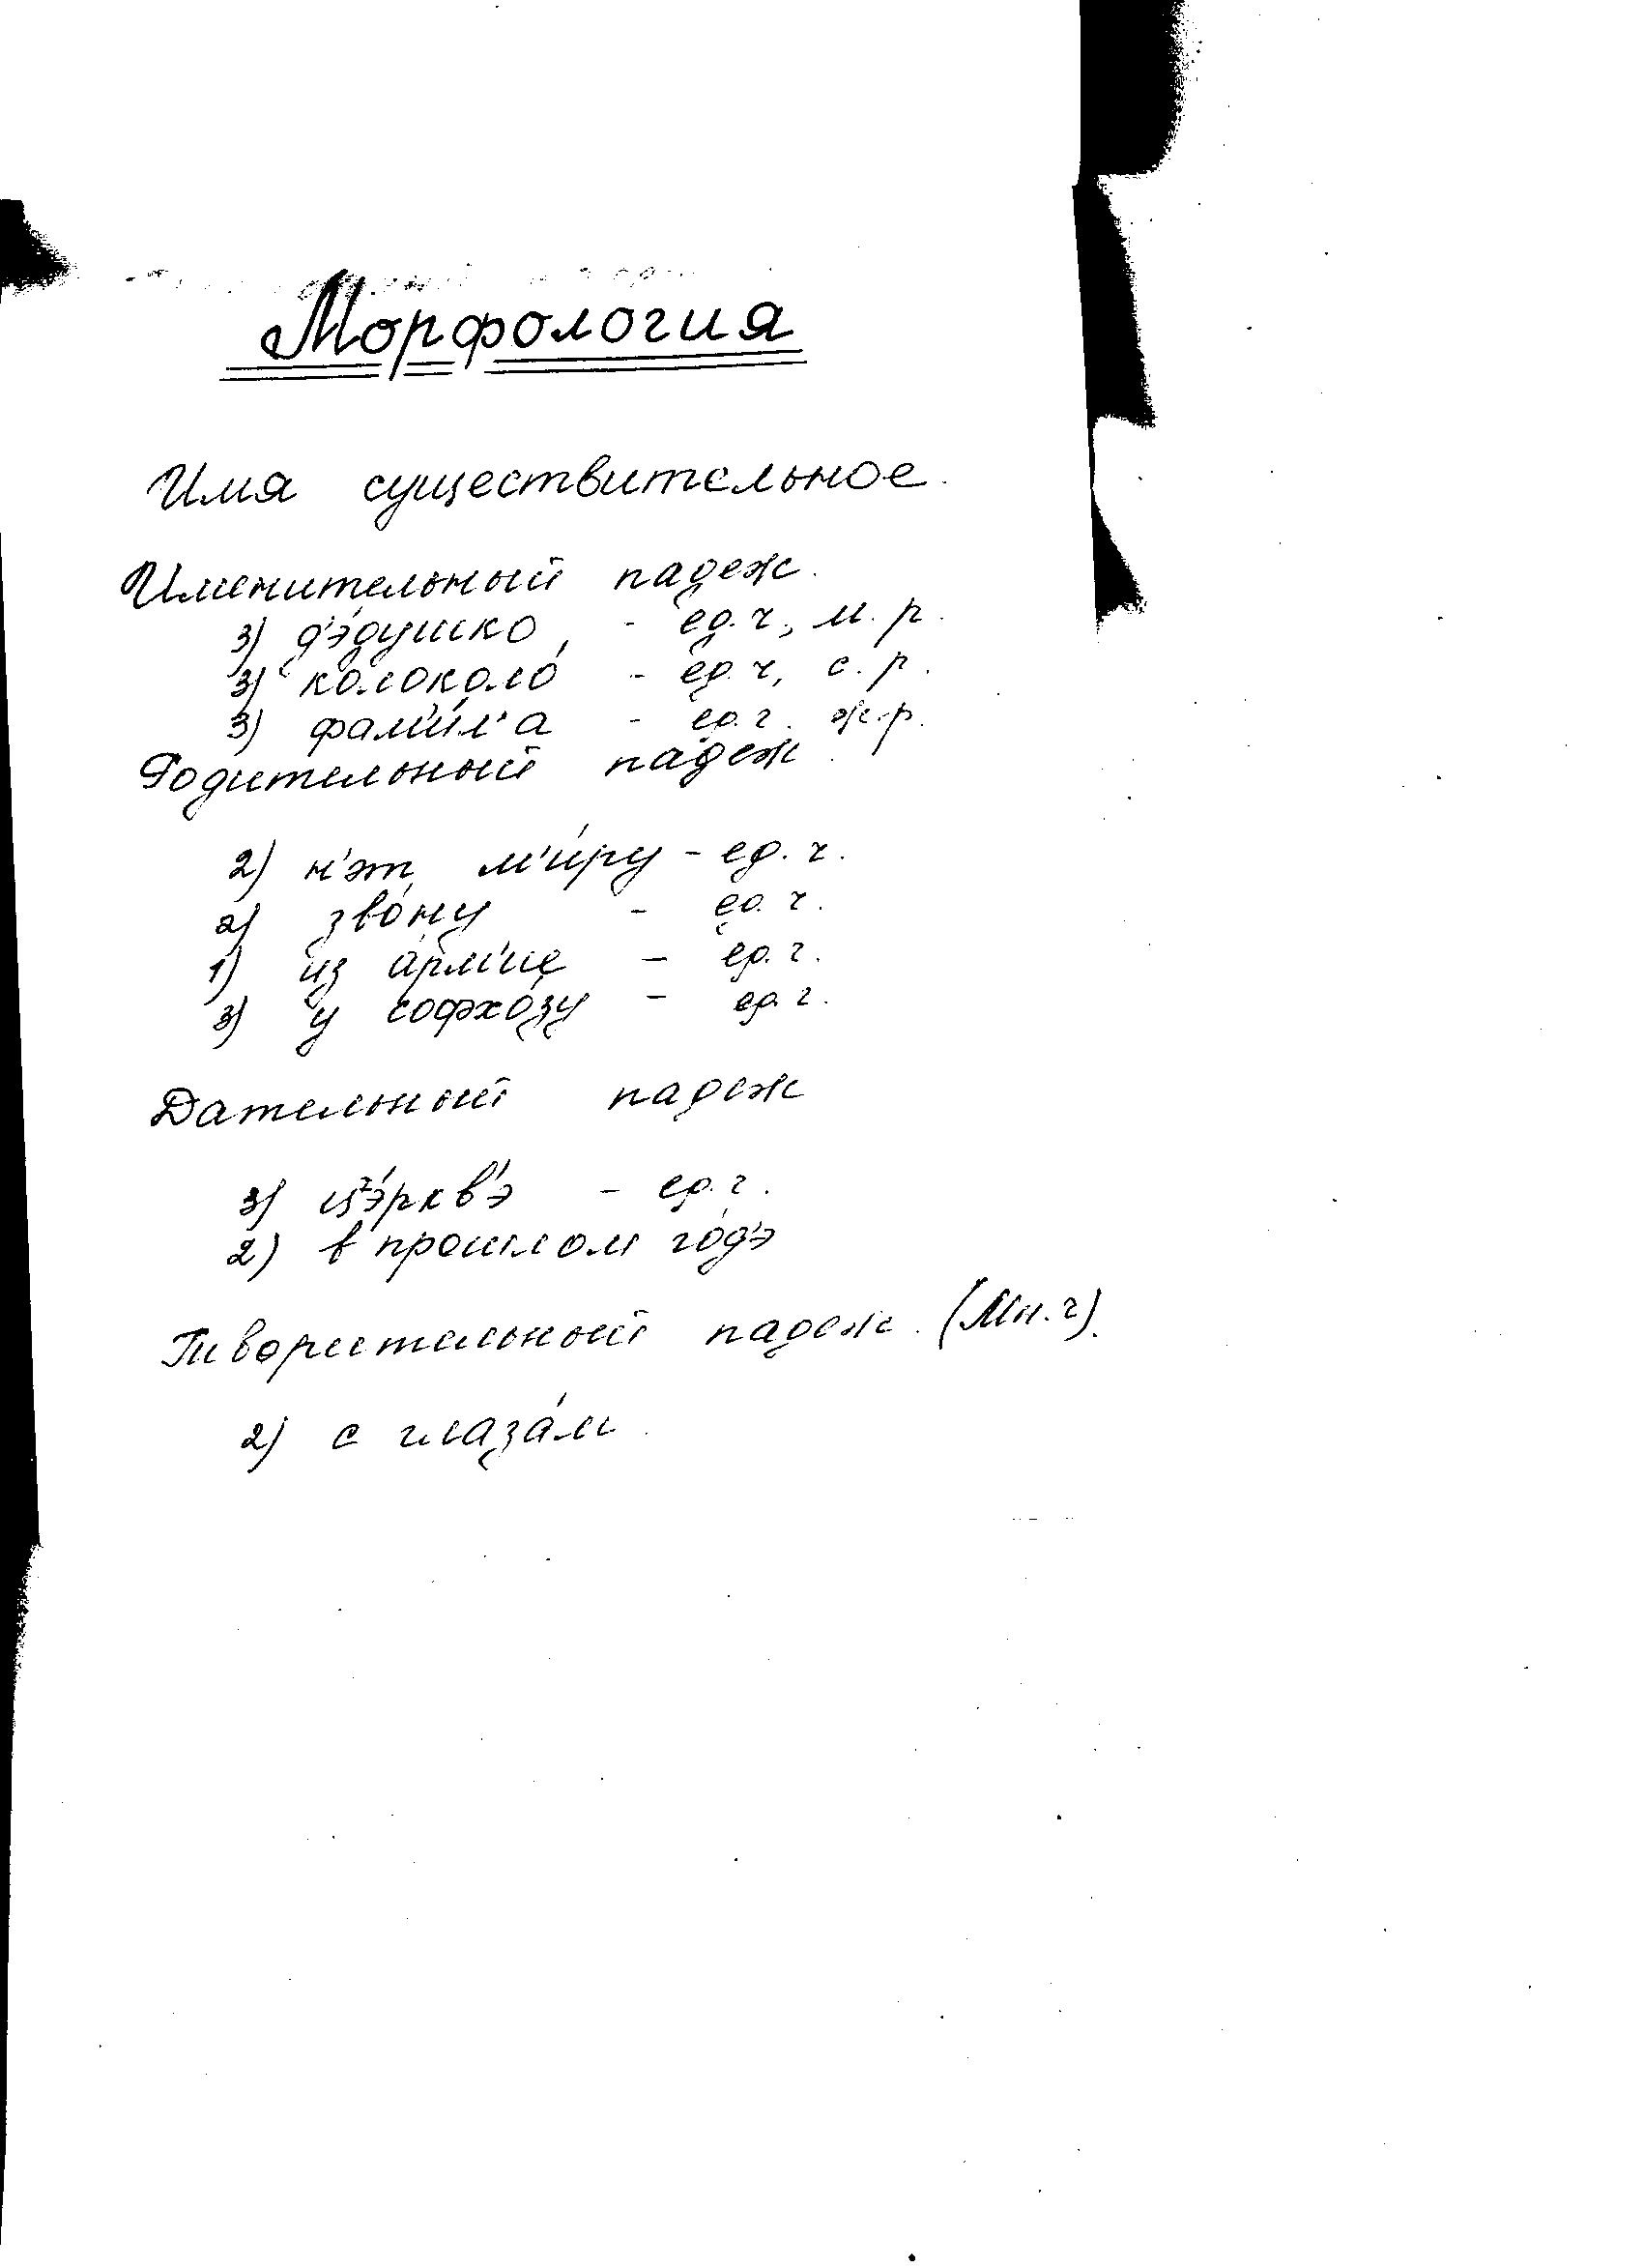 Морфология
Имя существительное.
Именительный падеж.
3) д'э́душко, - ед.ч., м.р.
3) колоколо́ - ед.ч, с.р.
3) фам'и́л'а - ед.ч. ж.р.
Родительный падеж.
2) н'эт м'и́ру - ед.ч.
2) зво́ну - ед.ч.
1) из а́рм'ие - ед.ч.
3) у софхо́зу - ед.ч.
Дательный падеж
3) э́ркв'э - ед.ч.
2) в прошлом го́д'э
Творительный падеж. (Мн.ч).
2) с глаза́м.